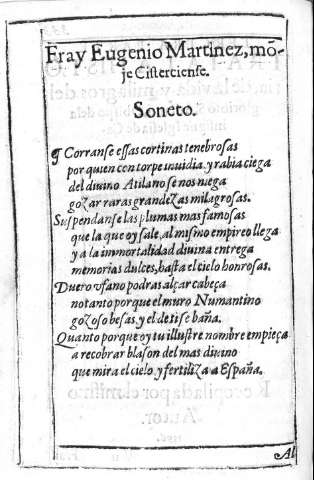 Fray Eugenio Martinez, mõ-
je Cisterciense.
Soneto.
¶ Corranse essas cortinas tenebrosas
por quien con torpe inuidia, y rabia ciega
del diuino Atilano se nos niega
gozar raras grandezas milagrosas.
Suspendanse las plumas mas famosas
que la que oy sale, al mismo empireo llega
y a la immortalidad diuina entrega
memorias dulces, hasta el cielo honrosas.
Duero vfano podras alçar cabeça
no tanto porque el muro Numantino
gozoso besas, y el de ti se baña.
Quanto porque oy tu illustre nombre empieça
a recobrar blason del mas diuino
que mira el cielo, y fertiliza a España.
Al